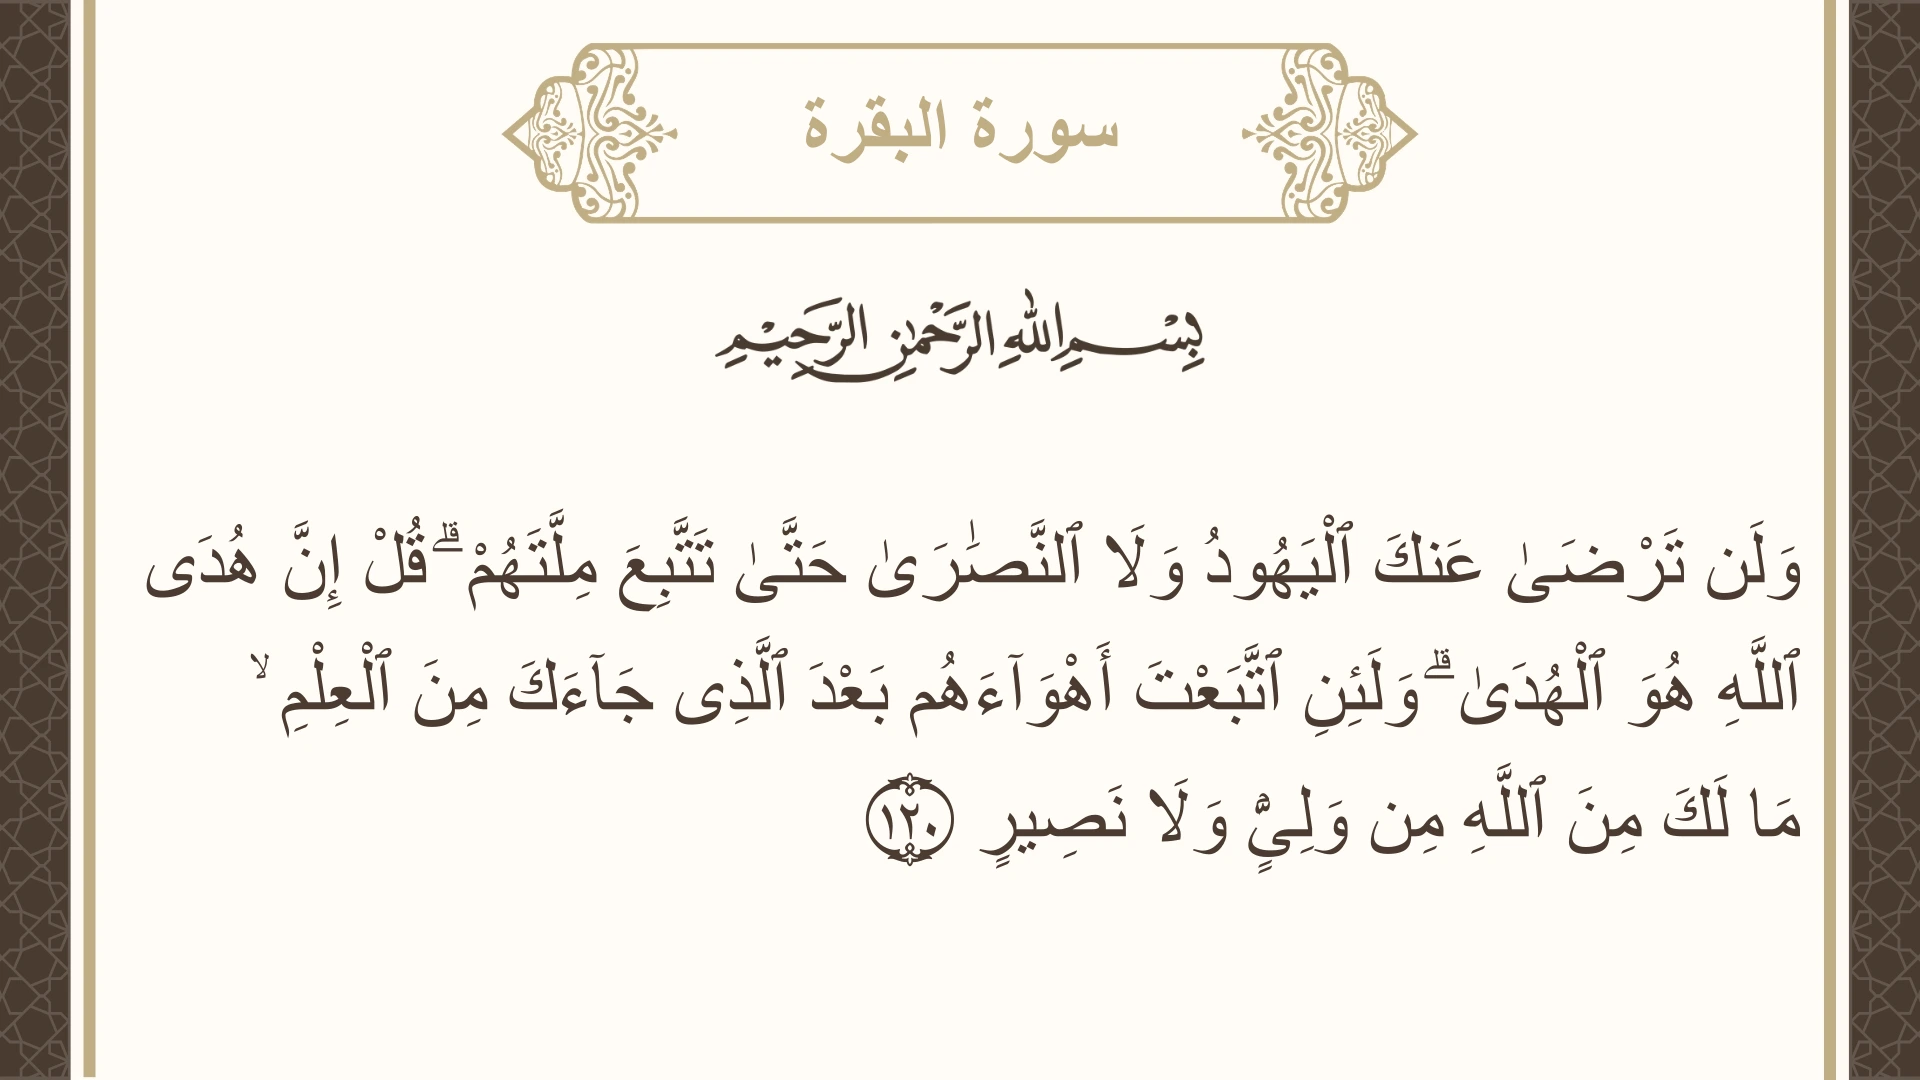 سورة البقرة
بِسْمِ اللهِ الرَّحْمٰنِ الرَّحِيْمِ
وَلَن تَرْضَىٰ عَنكَ ٱلْيَهُودُ وَلَا ٱلنَّصَـٰرَىٰ حَتَّىٰ تَتَّبِعَ مِلَّتَهُمْ ۗ قُلْ إِنَّ هُدَى
ٱللَّهِ هُوَ ٱلْهُدَىٰ ۗ وَلَئِنِ ٱتَّبَعْتَ أَهْوَآءَهُم بَعْدَ ٱلَّذِى جَآءَكَ مِنَ ٱلْعِلْمِ ۙ
مَا لَكَ مِنَ ٱللَّهِ مِن وَلِيٍّ وَلَا نَصِيرٍ ١٢٠